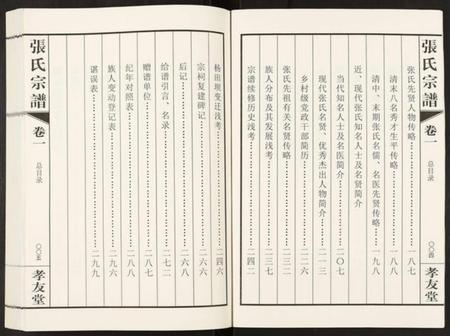 張氏宗譜
卷一
总目录
〇〇四
孝友堂
张氏先贤人物传略……一八七
清末八名秀才生平传略……一八八
清中、末期张氏名儒、名医先贤传略……一九八
近、现代张氏知名人士及名贤简介
当代知名人士及名医简介……二〇七
现代张氏名贤、优秀杰出人物简介……二一三
乡村级党政干部简历……二三一
张氏先祖有关名贤传略……二三三
族人分布及其发展浅考……二三七
宗谱续修历史浅考……二四二
杨田坝变迁浅考……二四六
宗祠复建碑记……二六六
后记……
给谱引言、名录……二七二
赠谱单位……二八七
纪年对照表……
族人变动登记表……二九六
谌误表……二九九
張氏宗譜
卷一
总目录
〇〇五
孝友堂